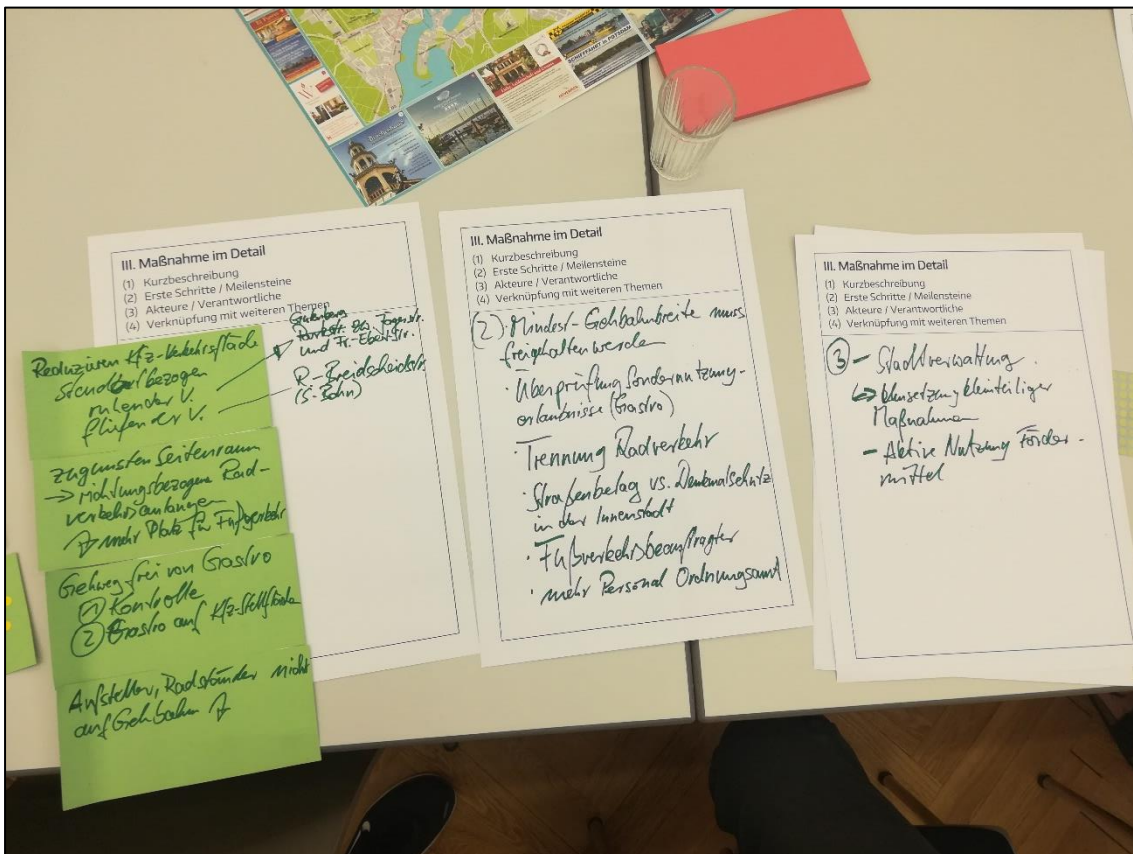 SCHIFFFAHRT in POTSDAM
III. Maßnahme im Detail
(1) Kurzbeschreibung
(2) Erste Schritte / Meilensteine
(3) Akteure / Verantwortliche
(4) Verknüpfung mit weiteren Themen
Gutenberg
Parkstr. bis Jägerstr.
und Fr.-Ebert-Str.
R-Breidscheidstr.
(S-Bahn)
Reduzieren Kfz-Verkehrsfläche
Standortbezogen
ruhender V.
fließender V.
zugunsten Seitenraum
→ richtungsbezogene Rad-
verkehrsanlagen
mehr Platz für Fußverkehr
Gehweg frei von Gastro
① Kontrolle
② Gastro auf Kfz-Stellfläche
Aufsteller, Radständer nicht
auf Gehbahn
III. Maßnahme im Detail
(1) Kurzbeschreibung
(2) Erste Schritte / Meilensteine
(3) Akteure / Verantwortliche
(4) Verknüpfung mit weiteren Themen
② · Mindest-Gehbahnbreite muss
freigehalten werden
· Überprüfung Sondernutzung-
erlaubnisse (Gastro)
· Trennung Radverkehr
· Straßenbelag vs. Denkmalschutz
in der Innenstadt
· Fußverkehrsbeauftragter
· mehr Personal Ordnungsamt
III. Maßnahme im Detail
(1) Kurzbeschreibung
(2) Erste Schritte / Meilensteine
(3) Akteure / Verantwortliche
(4) Verknüpfung mit weiteren Themen
③ - Stadtverwaltung
↳ Umsetzung kleinteiliger
Maßnahmen
- Aktive Nutzung Förder-
mittel